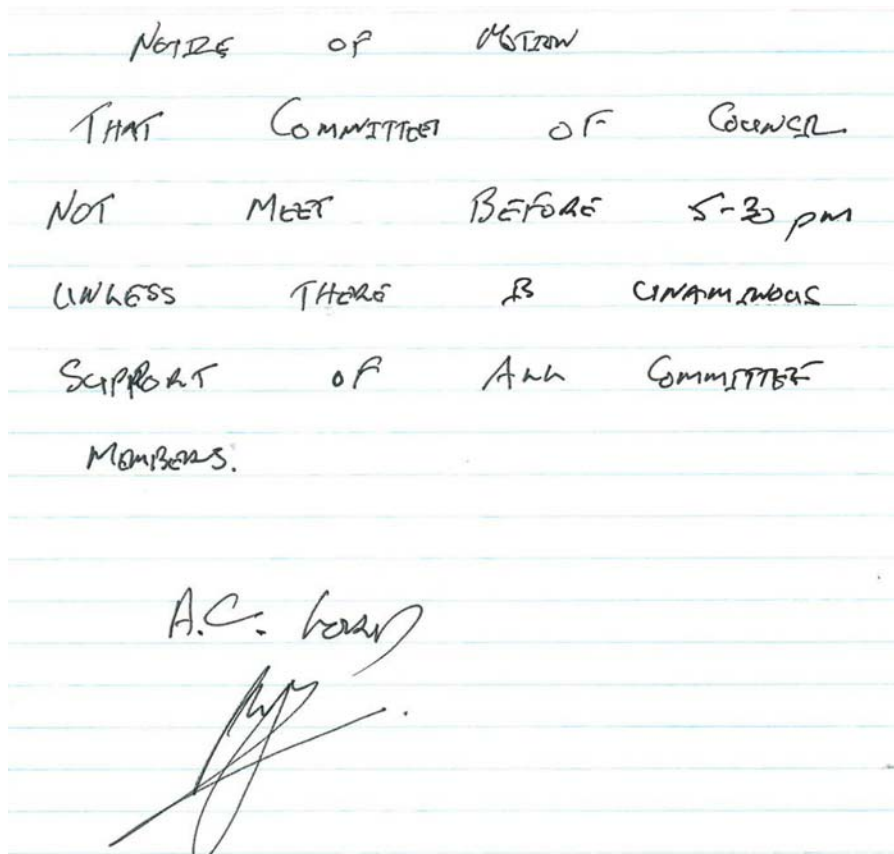 NOTICE OF MOTION
THAT COMMITTEES OF COUNCIL
NOT MEET BEFORE 5-30 pm
UNLESS THERE IS UNAMINOUS
SUPPORT OF ALL COMMITTEE
MEMBERS.
A.C.